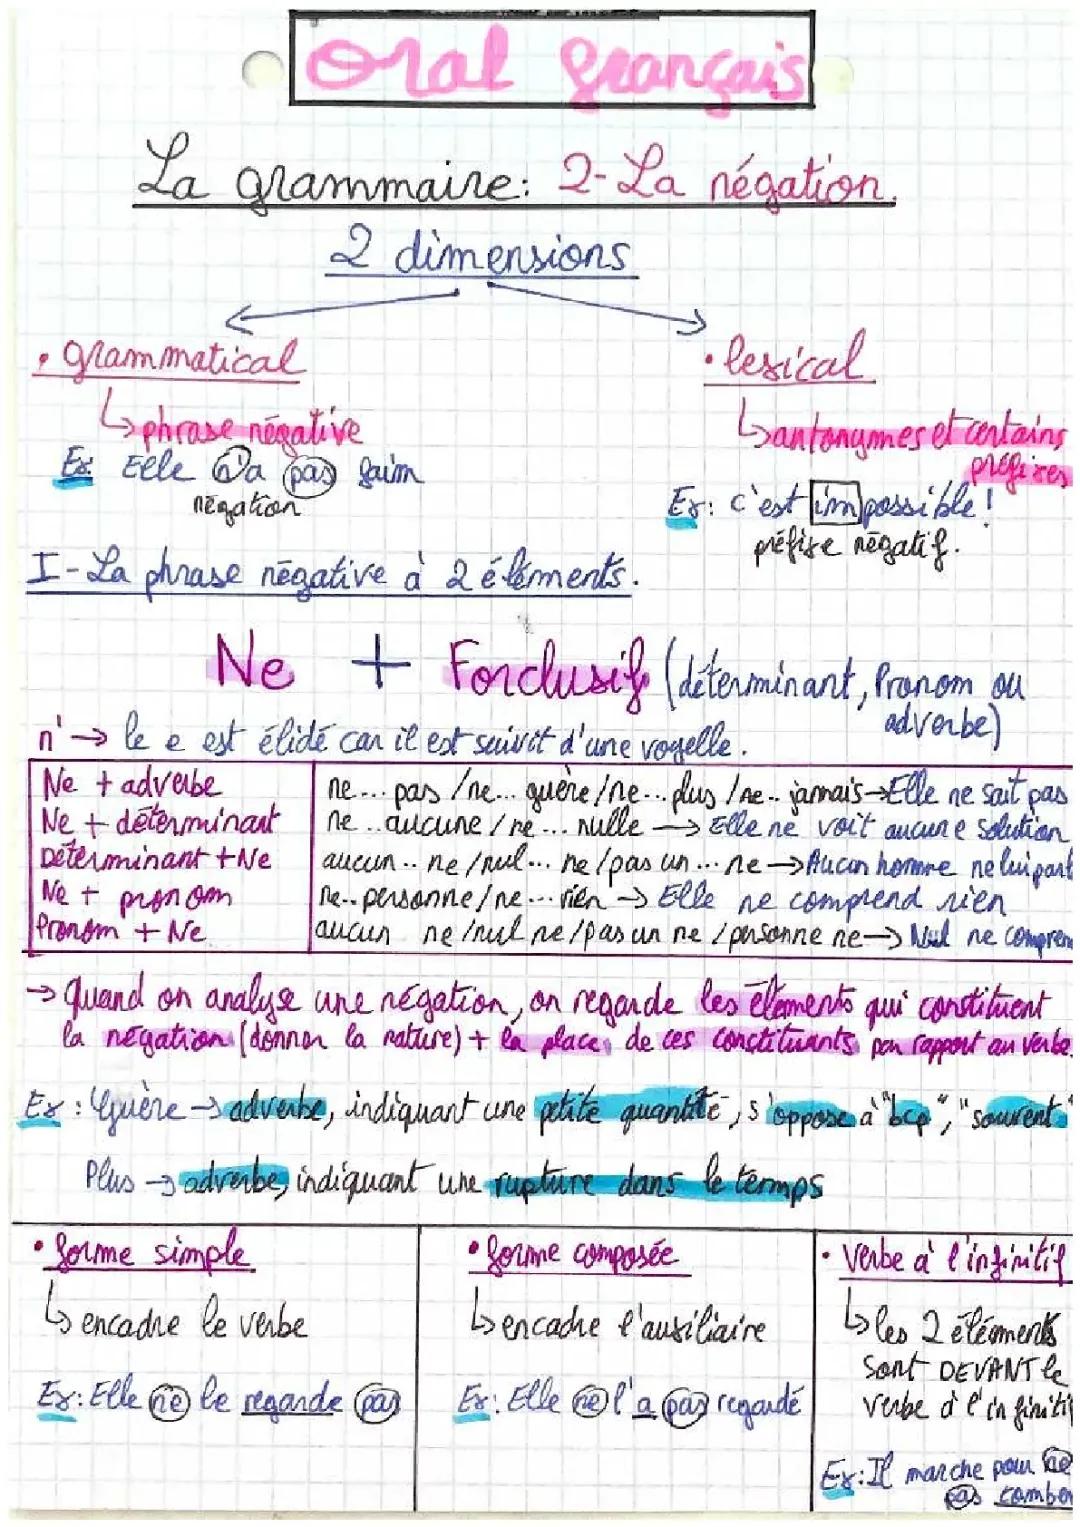 Oral français
La grammaire: 2-La négation.
2 dimensions
• grammatical
↳ phrase négative
Ex Elle n'a pas faim
négation
• lexical
↳ antonymes et certains
préfixes
Ex: c'est impossible!
préfixe négatif.
I-La phrase négative à 2 éléments.
Ne + Forclusif (déterminant, Pronom ou
adverbe)
n' → le e est élidé car il est suivit d'une voyelle.
Ne + adverbe ne... pas /ne... guère/ne...plus /ne.. jamais→Elle ne sait pas
Ne + déterminant ne ..aucune / ne ... nulle → Elle ne voit aucune solution
Déterminant + Ne aucun .. ne /nul... ne /pas un ... ne →Aucun homme ne lui parl
Ne + pronom ne..personne/ne...rien → Elle ne comprend rien
Pronom + Ne aucun ne/nul ne/pas un ne /personne ne→ Nul ne compren
→ Quand on analyse une négation, on regarde les éléments qui constituent
la négation (donner la nature) + la place de ces constituants par rapport au verbe.
Ex : Guère → adverbe, indiquant une petite quantité, s'oppose à "bcp", "souvent"
Plus → adverbe, indiquant une rupture dans le temps
• forme simple
↳ encadre le verbe
Ex: Elle ne le regarde pas
• forme composée
↳ encadre l'auxiliaire
Ex: Elle ne l'a pas regardé
• Verbe à l'infinitif
↳ les 2 éléments
sont DEVANT le
verbe à l'infiniti
Ex: Il marche pour ne
pas tomber